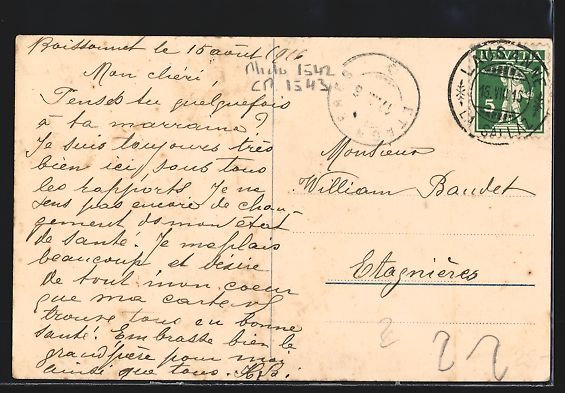 Boissonnet le 15 août 1916
Mon chéri
Penses tu quelquefois
à ta marraine ?
Je suis toujours très
bien ici, sous tous
les rapports. Je ne
sens pas encore de chan
gement ds mon état
de santé. Je me plais
beaucoup et désire
de tout mon coeur
que ma carte vs
trouve tous en bonne
santé. Embrasse bien le
grand'père pour moi
ainsi que tous. 
1542
CP 1543
ETAGNIERES
HELVETIA
5
LAUSANNE
Monsieur
William Baudet
Etagnières
2 2 2